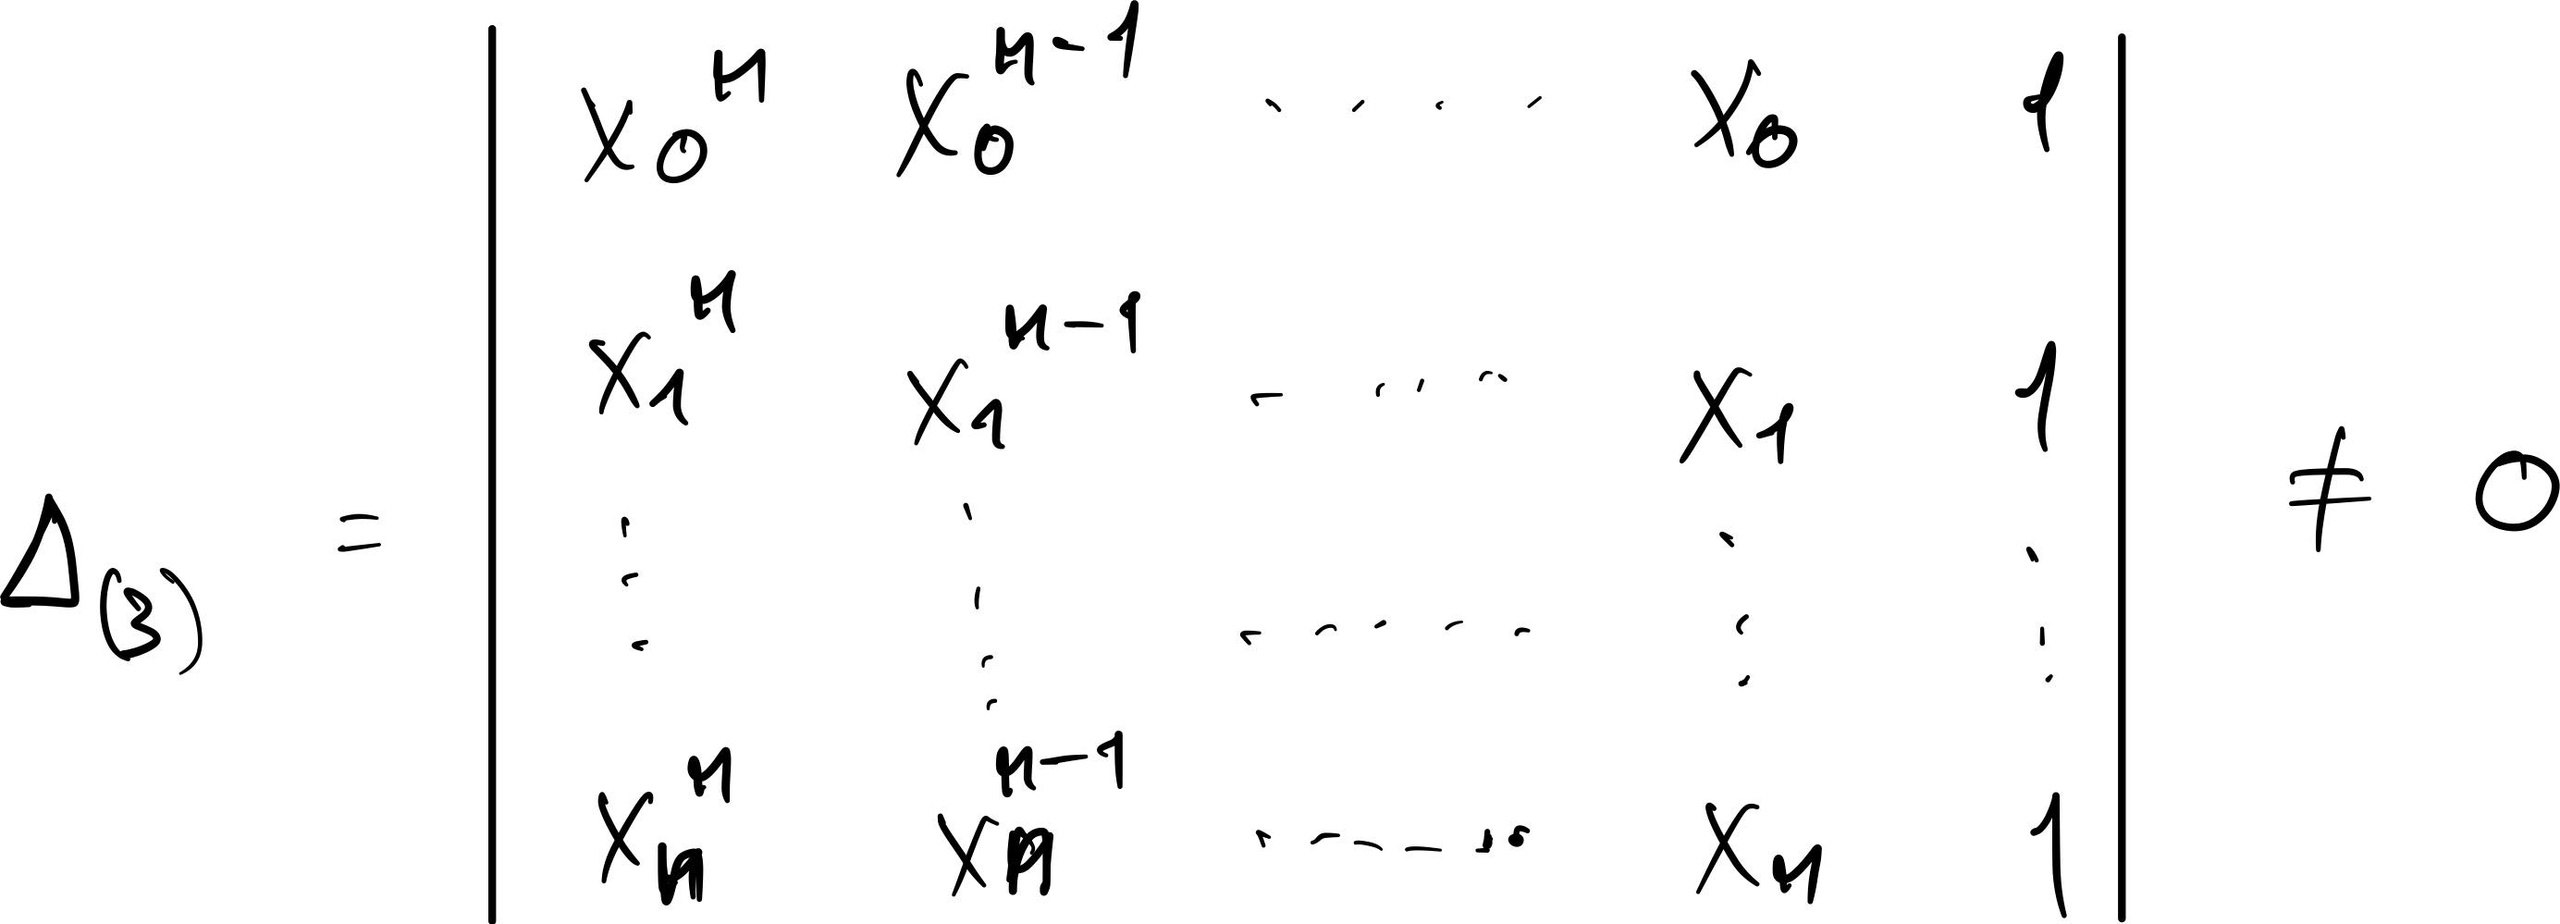 Δ₍₃₎ = | x₀ⁿ x₀ⁿ⁻¹ .... x₀ 1 |
| x₁ⁿ x₁ⁿ⁻¹ ..... x₁ 1 |
| ⋮ ⋮ ..... ⋮ ⋮ | ≠ 0
| xₙⁿ xₙⁿ⁻¹ ...... xₙ 1 |